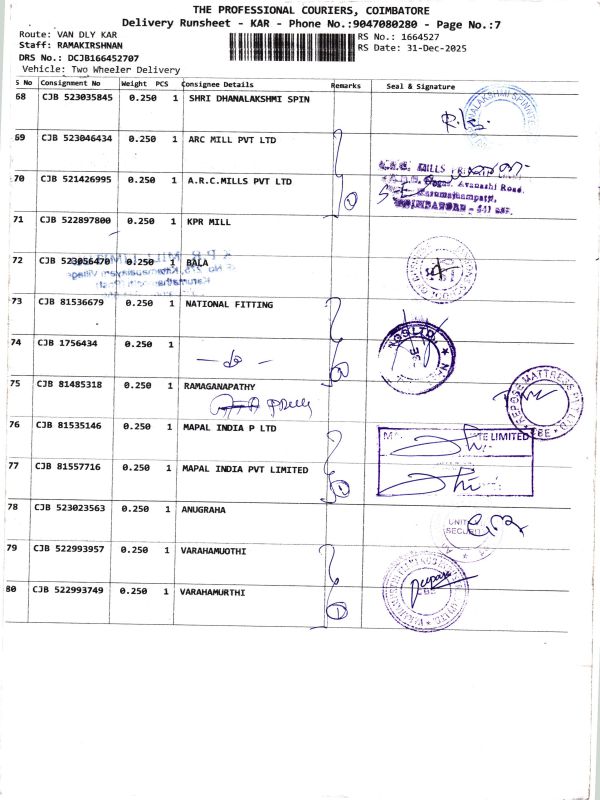 THE PROFESSIONAL COURIERS, COIMBATORE
Delivery Runsheet - KAR - Phone No.:9047080280 - Page No.:7
Route: VAN DLY KAR
RS No.: 1664527
Staff: RAMAKIRSHNAN
RS Date: 31-Dec-2025
DRS No.: DCJB166452707
Vehicle: Two Wheeler Delivery
S No Consignment No Weight PCS Consignee Details Remarks Seal & Signature
68 CJB 523035845 0.250 1 SHRI DHANALAKSHMI SPIN
69 CJB 523046434 0.250 1 ARC MILL PVT LTD
70 CJB 521426995 0.250 1 A.R.C.MILLS PVT LTD
MILLS
Avanashi Road,
71 CJB 522897800 0.250 1 KPR MILL
72 CJB 523056470 0.250 1 BALA
73 CJB 81536679 0.250 1 NATIONAL FITTING
74 CJB 1756434 0.250 1
75 CJB 81485318 0.250 1 RAMAGANAPATHY
REPOSE MATTRESS PVT LTD
76 CJB 81535146 0.250 1 MAPAL INDIA P LTD
LIMITED
77 CJB 81557716 0.250 1 MAPAL INDIA PVT LIMITED
78 CJB 523023563 0.250 1 ANUGRAHA
79 CJB 522993957 0.250 1 VARAHAMUOTHI
80 CJB 522993749 0.250 1 VARAHAMURTHI